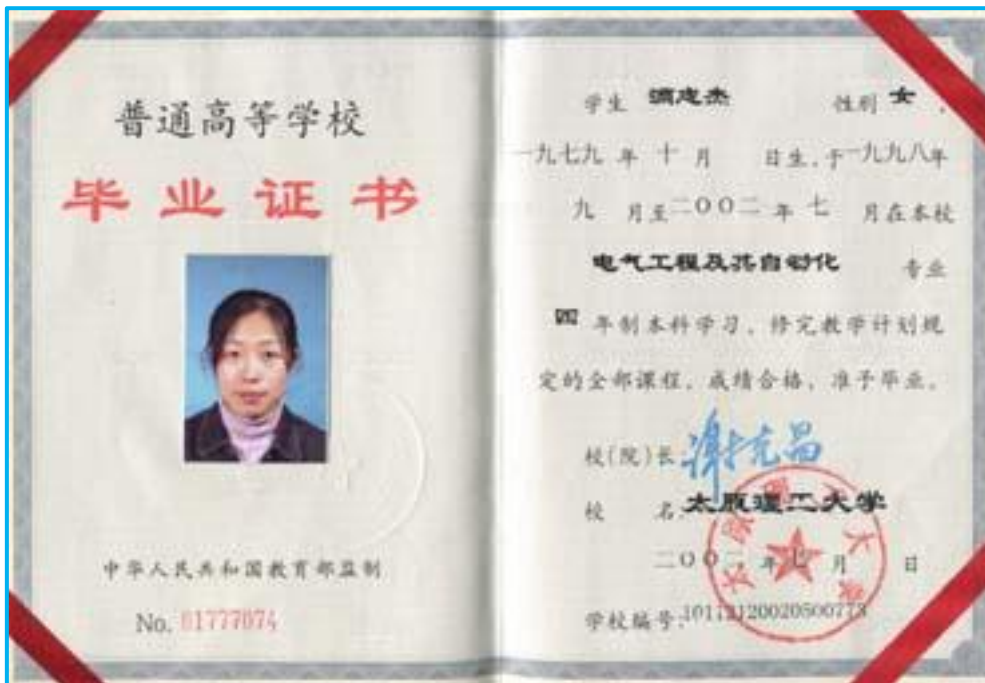 普通高等学校
毕业证书
中华人民共和国教育部监制
No. 01777074
学生 志杰 性别 女,
一九七九 年 十 月 日生,于一九九八年
九 月至二〇〇二 年 七 月在本校
电气工程及其自动化 专业
四 年制本科学习,修完教学计划规
定的全部课程,成绩合格,准予毕业。
校(院)长 谢克昌
校 名:太原理工大学
二〇〇二年七月 日
学校编号: